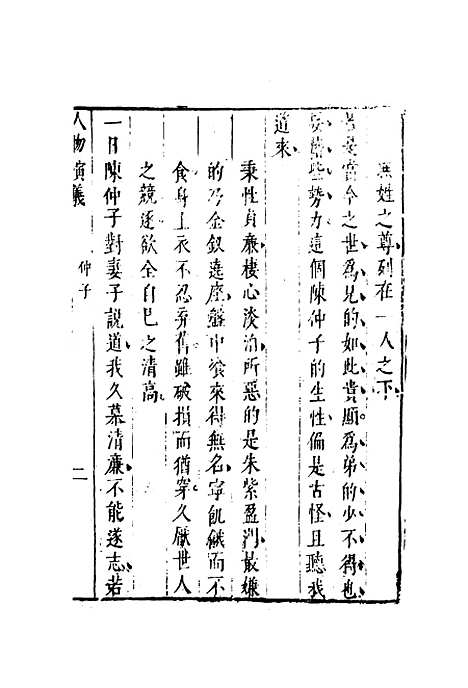 姓之尊列在一人之下
若是當今之世爲兄的如此貴顯爲弟的少不得也
要藉些勢力這個陳仲子的生性偏是古怪且聽我
道來
秉性貞廉棲心淡泊所惡的是朱紫盈列最嫌
的乃金釵遶座盤中飧來得無名寧飢餓而不
食身上衣不忍弃舊雖破損而猶穿久厭世人
之競逐欲全自已之清高
一日陳仲子對妻子說道我久慕清廉不能遂志若
人物演義
仲子
二